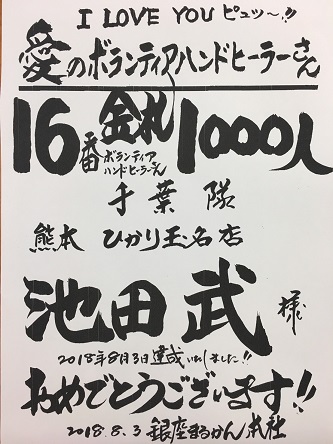 I LOVE YOU ピュッ〜!!
愛のボランティアハンドヒーラーさん
16番 金札 1000人
ボランティア
ハンドヒーラーさん
千葉隊
熊本 ひかり玉名店
池田武様
2018年8月3日達成いたしました!!
おめでとうございます!!
2018.8.3 銀座まるかん 本社